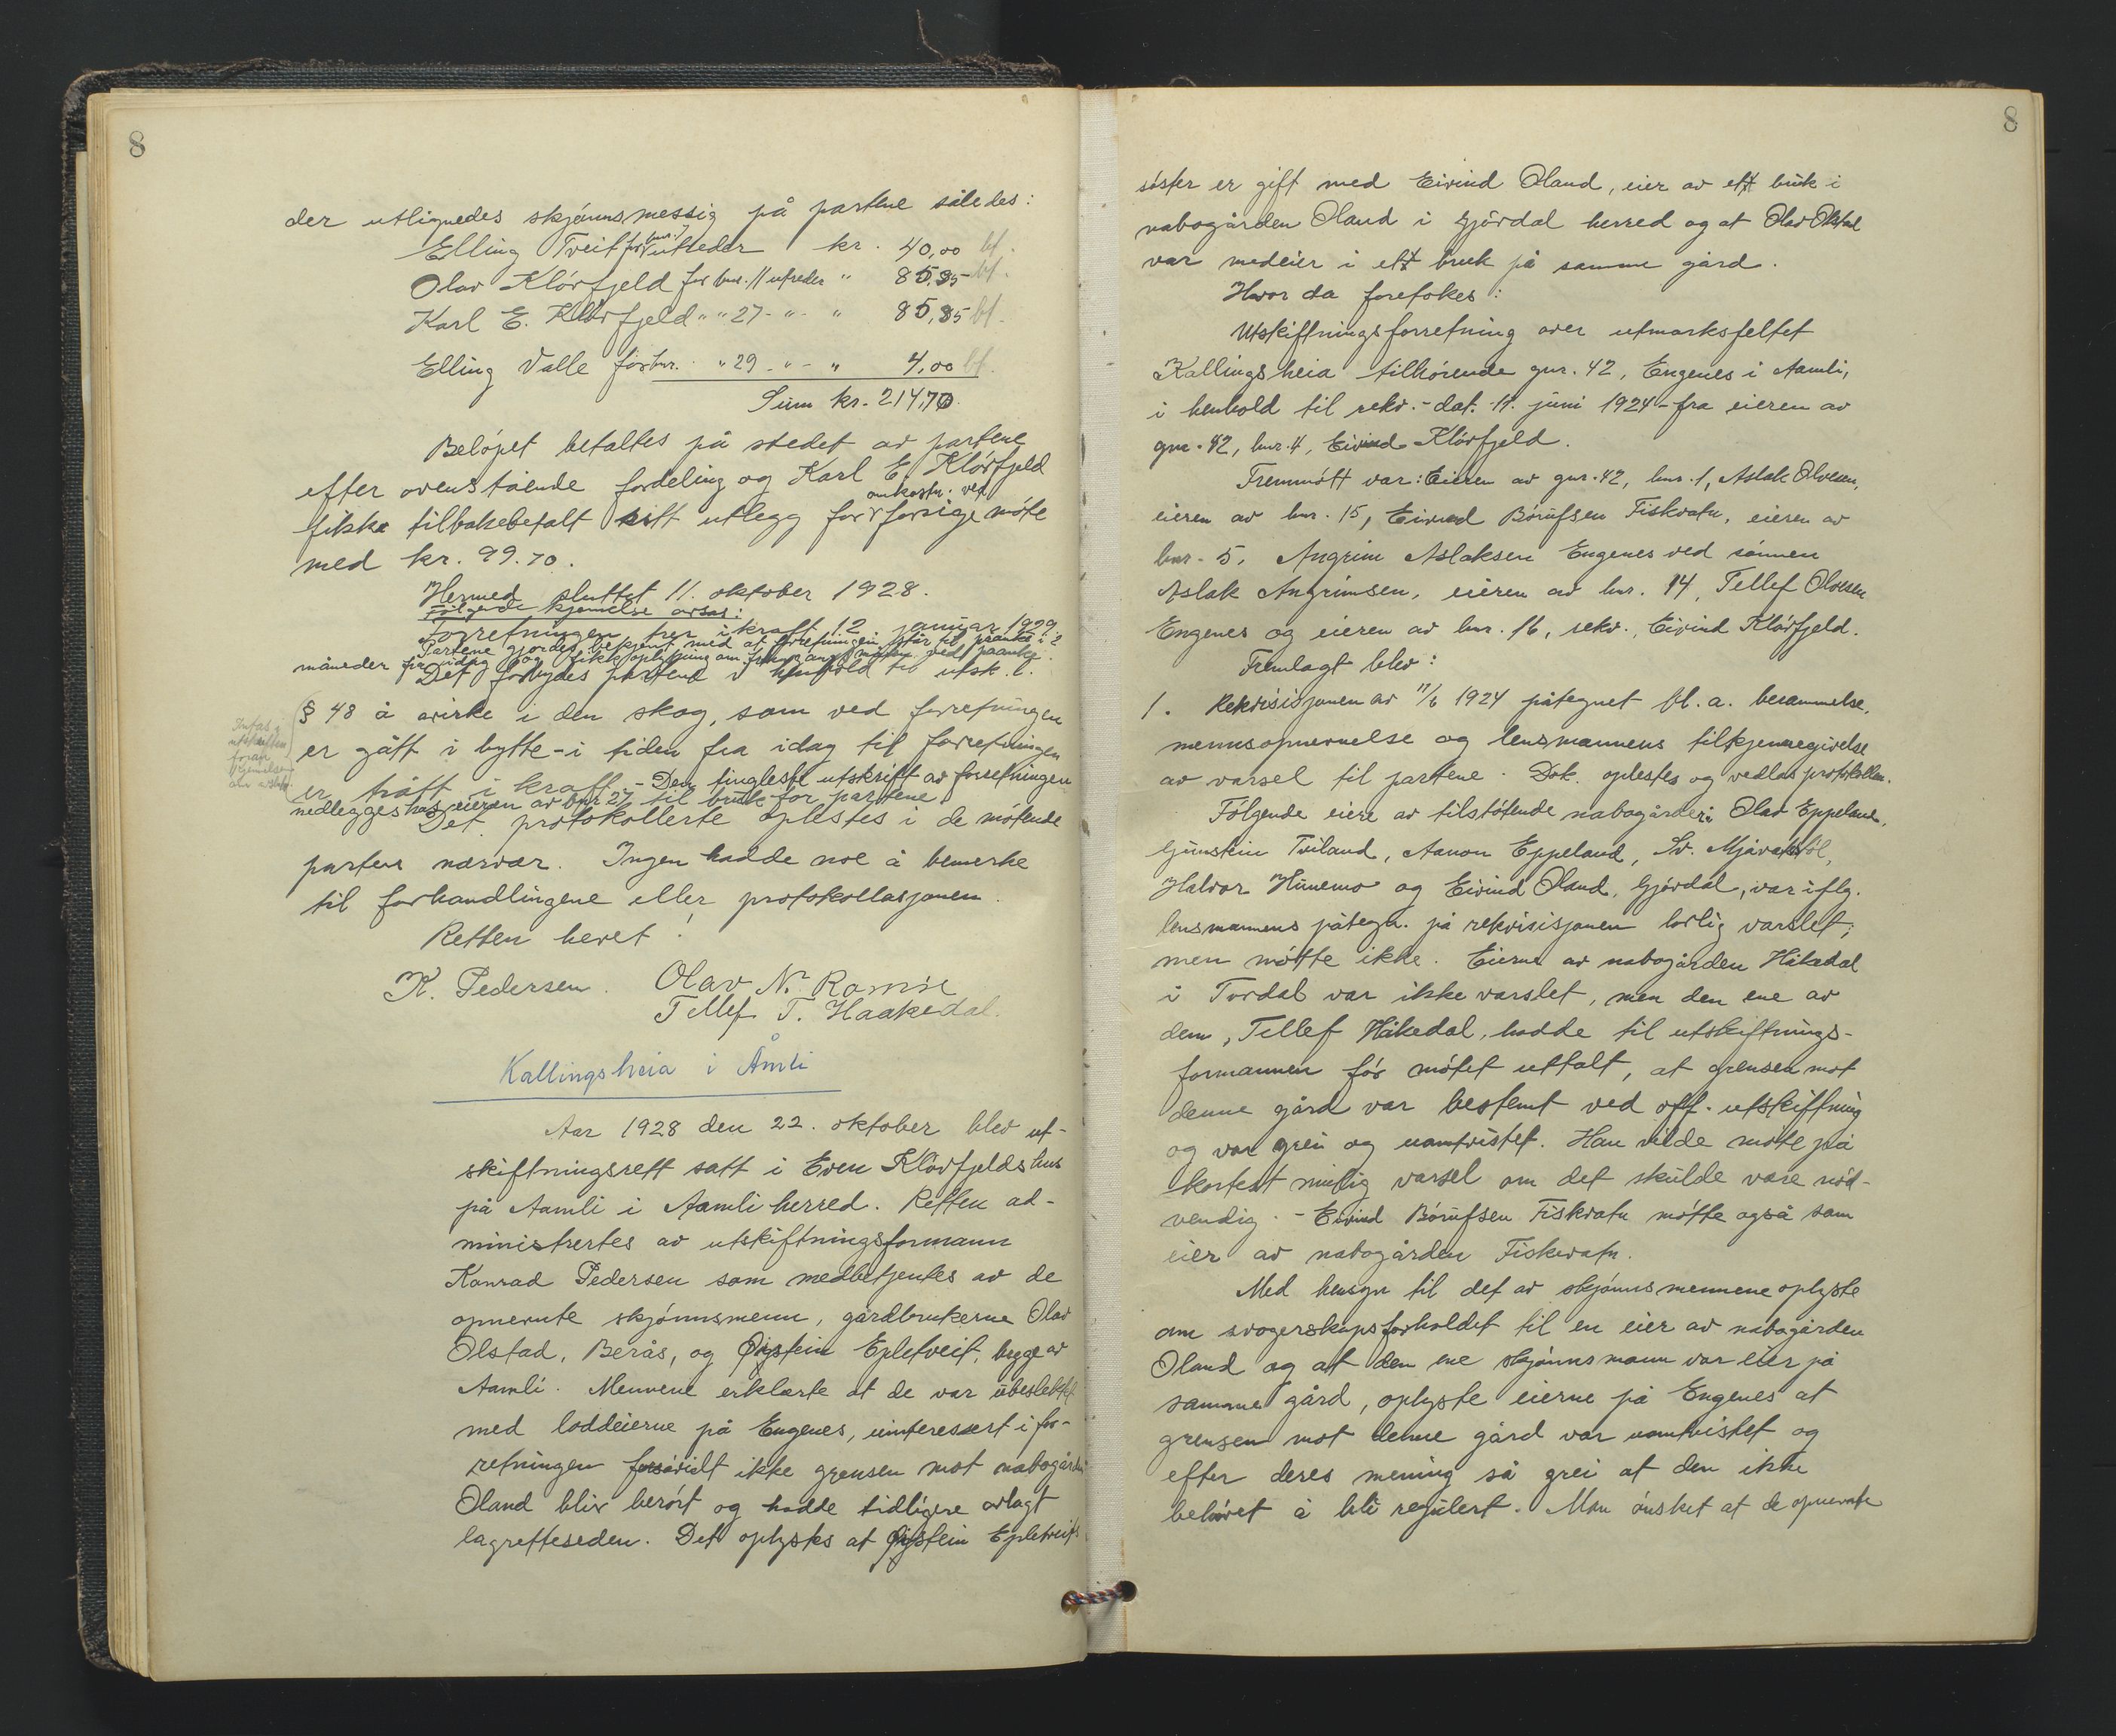 8
der utlignedes skjønnsmessig på partene således:
Elling Tveit for bnr. 7 utreder kr. 40,00 bt.
Olav Kløvfjeld for bnr. 11 utreder " 85,35 - bt.
Karl E. Kløvfjeld " " 27 - " - " 85,35 bt.
Elling Valle for bnr. " 29 - " - " 4,00 bt.
Sum kr. 214,70.
Beløpet betaltes på stedet av partene
efter ovenstående fordeling og Karl E. Kløvfjeld
fikk tilbakebetalt sitt utlegg for omkostn. ved forrige møte
med kr. 99.70.
Hermed sluttet 11. oktober 1928.
Følgende kjennelse avsas:
Forretningen trer i kraft 12 januar 1929.
Partene gjordes bekjent med at forretningen står til paanke i 2
måneder fra idag og fikk oplysning om fremgangsmåten ved paanke.
Det forbydes partene i henhold til utsk. l.
§ 48 å virke i den skog, som ved forretningen
er gått i bytte - i tiden fra idag til forretningen
er trått i kraft. - Den tingleste utskrift av forretningen
nedlegges hos eieren av bnr 27 til bruk for partene.
Det protokollerte oplestes i de møtende
parters nærvær. Ingen hadde noe å bemerke
til forhandlingene eller protokollasjonen.
Retten hevet!
K. Pedersen. Olav N. Ramse
Tellef T. Haakedal.
Kallingsheia i Åmli
Aar 1928 den 22. oktober blev ut-
skiftningsrett satt i Even Kløvfjelds hus
på Aamli i Aamli herred. Retten ad-
ministrertes av utskiftningsformann
Konrad Pedersen som medbetjentes av de
opnevnte skjønnsmenn, gårdbrukerne Olav
Olstad, Berås, og Øystein Epletveit, begge av
Aamli. Mennene erklærte at de var ubeslektet
med loddeierne på Engenes, uinteressert i for-
retningen forsåvidt ikke grensen mot nabogården
Øland blir berørt og hadde tidligere avlagt
lagretteseden. Det oplystes at Øystein Epletveits
8
søster er gift med Eivind Øland, eier av ett bruk i
nabogården Øland i Gjøvdal herred og at Olav Olstad
var medeier i ett bruk på samme gård.
Hvor da foretokes:
Utskiftningsforretning over utmarksfeltet
Kallingsheia tilhørende gnr. 42, Engenes i Aamli,
i henhold til rekv. - dat. 11. juni 1924 - fra eieren av
gnr. 42, bnr. 4, Eivind Kløvfjeld.
Fremmøtt var: Eieren av gnr. 42, bnr. 1, Aslak Olvesen,
eieren av bnr. 15, Eivind Børufsen Fiskvatn, eieren av
bnr. 5, Angrim Aslaksen Engenes ved sønnen
Aslak Angrimsen, eieren av bnr. 14, Tellef Olvesen
Engenes og eieren av bnr. 16, rekv., Eivind Kløvfjeld.
Fremlagt blev:
1. Rekvisisjonen av 11/6 1924 påtegnet bl. a. berammelse,
mennsopnevnelse og lensmannens tilkjennegivelse
av varsel til partene. Dok. oplestes og vedlas protokollen.
Følgende eiere av tilstøtende nabogårder: Olav Eppeland,
Gunstein Tviland, Aanon Eppeland, Sv. Mjåvatstøl,
Halvor Hunemo og Eivind Øland, Gjøvdal, var iflg.
lensmannens påtegn. på rekvisisjonen lovlig varslet;
men møtte ikke. Eierne av nabogården Håkedal
i Tovdal var ikke varslet, men den ene av
dem, Tellef Håkedal, hadde til utskiftnings-
formannen før møtet uttalt, at grensen mot
denne gård var bestemt ved off. utskiftning
og var grei og uomtvistet. Han vilde møte på
kortest mulig varsel om det skulde være nød-
vendig. - Eivind Børufsen Fiskvatn møtte også som
eier av nabogården Fiskevatn.
Med hensyn til det av skjønnsmennene oplyste
om svogerskapsforholdet til en eier av nabogården
Øland og at den ene skjønnsmann var eier på
samme gård, oplyste eierne på Engenes at
grensen mot denne gård var uomtvistet og
efter deres mening så grei at den ikke
behøvet å bli regulert. Man ønsket at de opnevnte